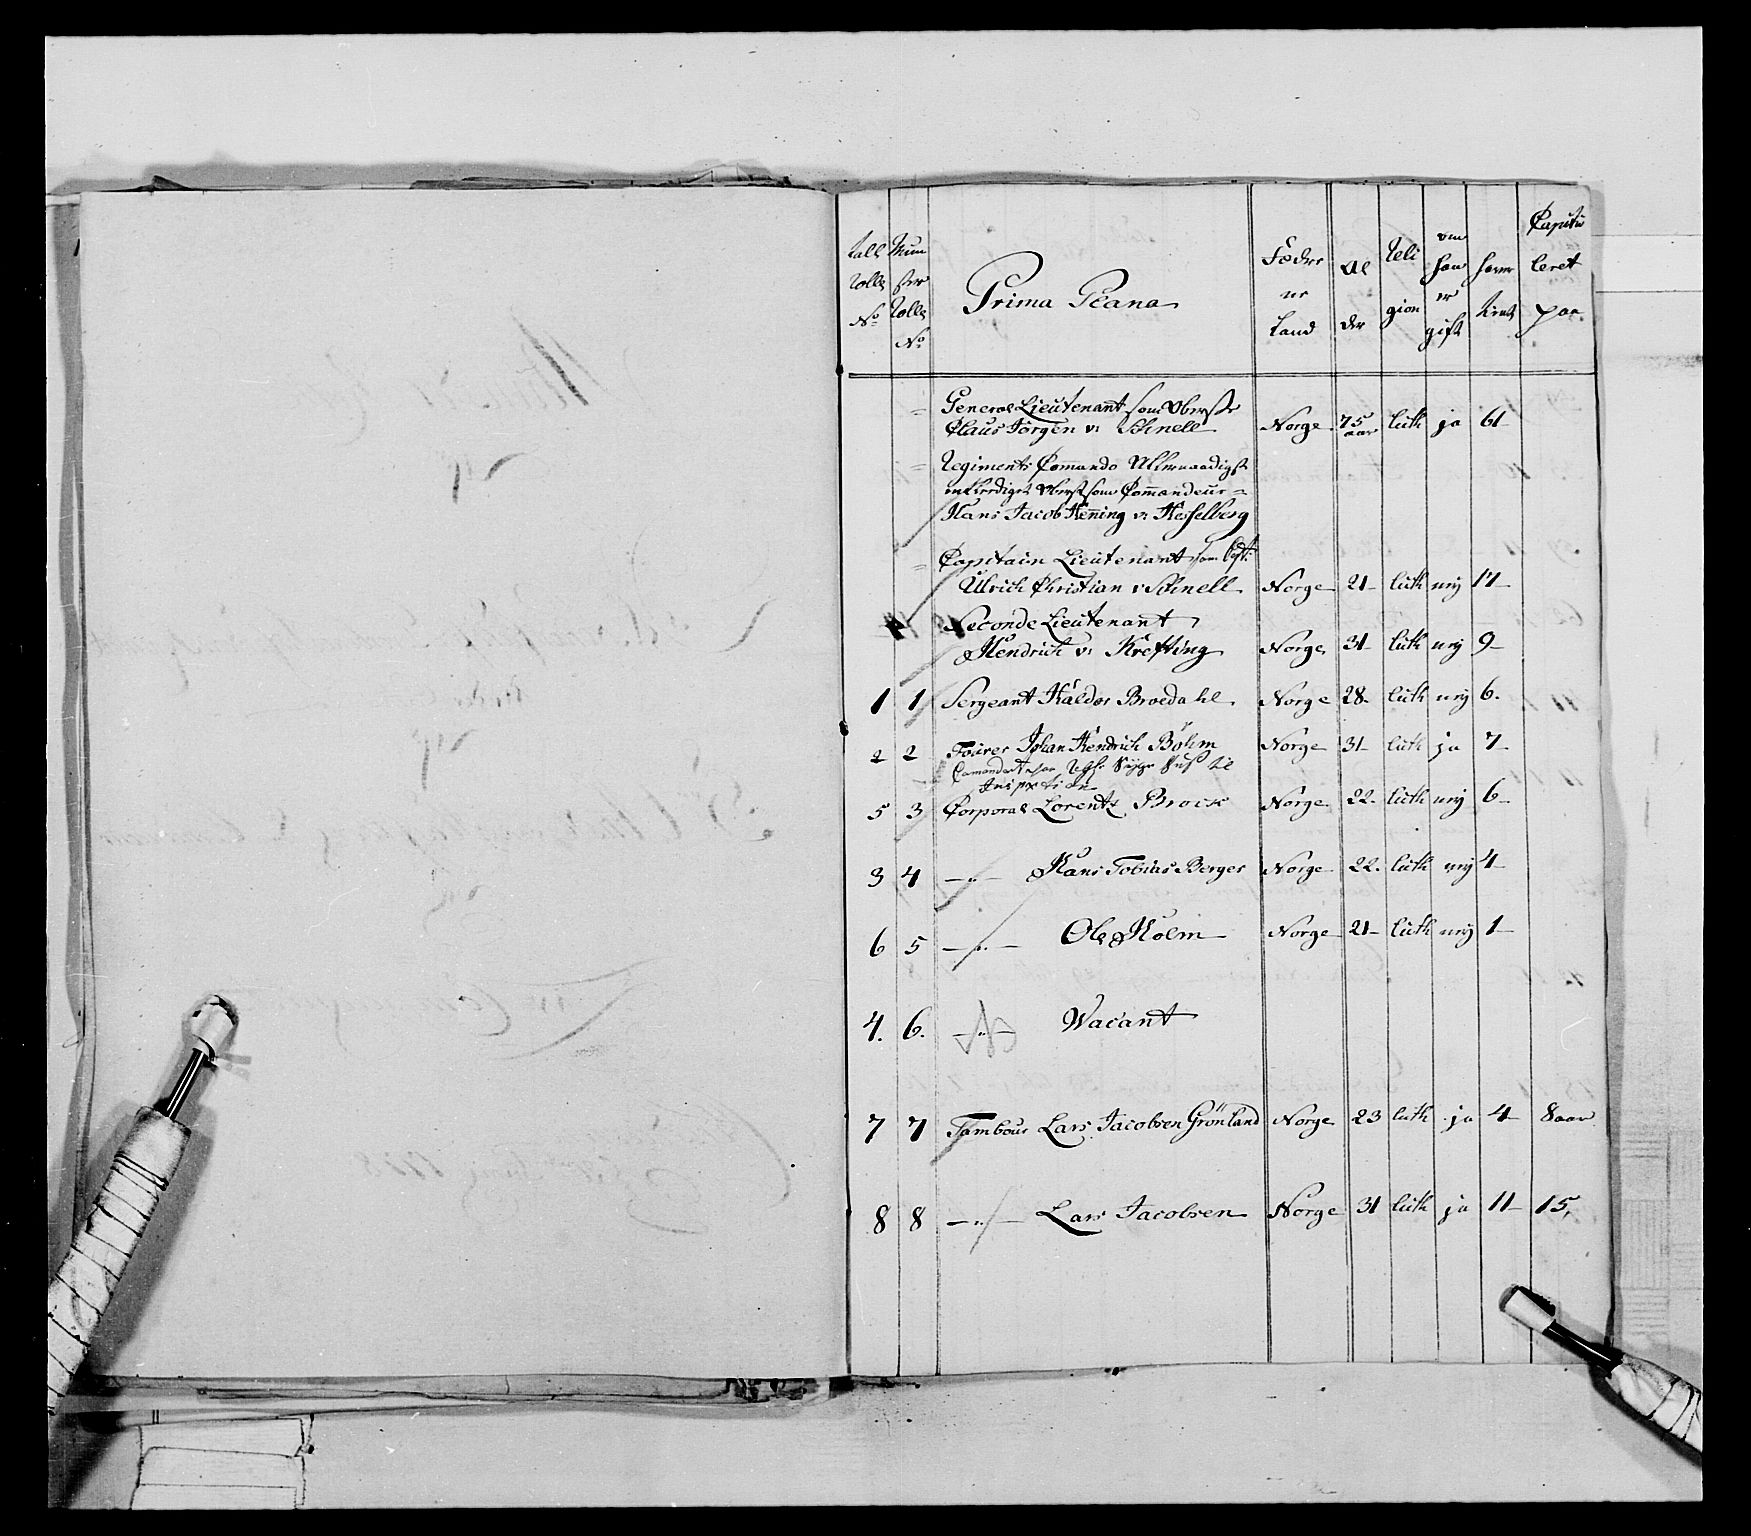 Rulle Rolle No
Mun ster Rolle No
Prima Plana
Føder ne Land
Al der
Reli gion
om han er gift
Capitu leret paa
General Lieutenant som Oberste
Claus Jørgen v: Schnell Norge 75 aar luth ja 61
Regiments Commando Allernaadigst
anfortroede Oberst som Commandeur
Hans Jacob Henning v: Hesselberg
Capitain Lieutenant som Capt:
Ulrich Christian v: Schnell Norge 21 luth nej 17
Seconde Lieutenant
Hendrich v: Krefting Norge 31 luth nej 9
1 1 Sergeant Haldor Broedahl Norge 28. luth nej 6.
2 2 Fourer Johan Hendrich Böhm Norge 31 luth ja 7
Inspection
5 3 Corporal Lorentz Brock Norge 22. luth nej 6
3 4 —"— Hans Tobias Berger Norge 22. luth nej 4
6 5 —"— Ole Holm Norge 21 luth nej 1
4. 6. —"— Vacant
7 7 Tambour Lars Jacobsen Grönland Norge 23 luth ja 4 8 aar
8 8 —"— Lars Jacobsen Norge 31 luth ja 11 15,